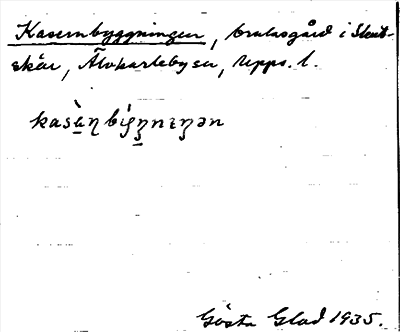 Kasernbyggningen, bruksgård i Skut-
skär, Älvkarleby sn, Upps. l.
kasὰ̱ŋbýg̱ŋnɪŋən
Gösta Glad 1935.